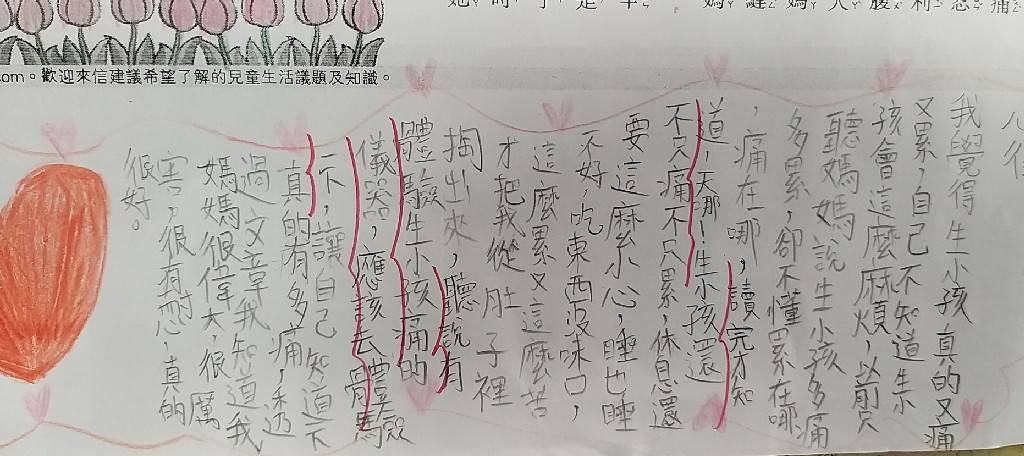 她時子是辛
媽縫媽人腹利忍痛
com。歡迎來信建議希望了解的兒童生活議題及知識。
心得
我覺得生小孩真的又痛
又累,自己不知道生小
孩會這麼麻煩,以前只
聽媽媽說生小孩多痛
多累,卻不懂累在哪
,痛在哪,讀完才知
道,天哪!生小孩還
不只痛不只累,休息還
要這麼小心,睡也睡
不好,吃東西沒味口,
這麼累又這麼苦
才把我從肚子裡
掏出來,聽說有
體驗生小孩痛的
儀器,應該去體驗
一下,讓自己知道下
真的有多痛,透
過文章我知道我
媽媽很偉大,很厲
害,很有耐心,真的
很好。